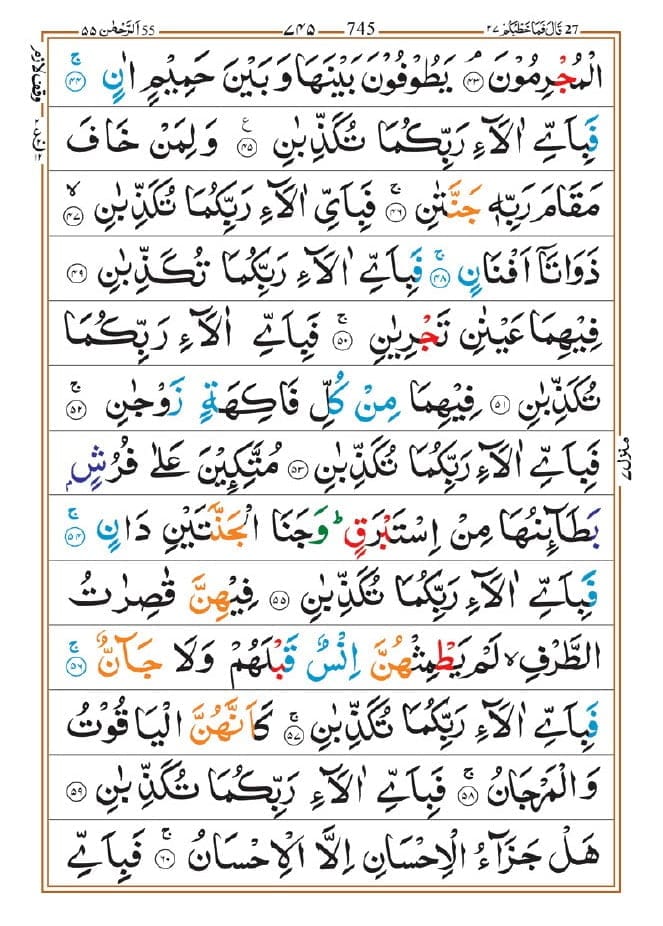 27 قَالَ فَمَا خَطْبُكُمْ ٢٧ 745 ٧٤٥ 55 اَلرَّحْمٰن ٥٥
الْمُجْرِمُوْنَ ۝٤٣ يَطُوْفُوْنَ بَيْنَهَا وَ بَيْنَ حَمِيْمٍ اٰنٍ ۚ۝٤٤
فَبِاَيِّ اٰلَآءِ رَبِّكُمَا تُكَذِّبٰنِ ۧ۝٤٥ وَ لِمَنْ خَافَ
مَقَامَ رَبِّهٖ جَنَّتٰنِ ۚ۝٤٦ فَبِاَيِّ اٰلَآءِ رَبِّكُمَا تُكَذِّبٰنِ ۙ۝٤٧
ذَوَاتَاۤ اَفْنَانٍ ۚ۝٤٨ فَبِاَيِّ اٰلَآءِ رَبِّكُمَا تُكَذِّبٰنِ ۝٤٩
فِيْهِمَا عَيْنٰنِ تَجْرِيٰنِ ۚ۝٥٠ فَبِاَيِّ اٰلَآءِ رَبِّكُمَا
تُكَذِّبٰنِ ۝٥١ فِيْهِمَا مِنْ كُلِّ فَاكِهَةٍ زَوْجٰنِ ۚ۝٥٢
فَبِاَيِّ اٰلَآءِ رَبِّكُمَا تُكَذِّبٰنِ ۝٥٣ مُتَّكِـِٕيْنَ عَلٰى فُرُشٍۭ
بَطَآىِٕنُهَا مِنْ اِسْتَبْرَقٍ ؕ وَ جَنَا الْجَنَّتَيْنِ دَانٍ ۚ۝٥٤
فَبِاَيِّ اٰلَآءِ رَبِّكُمَا تُكَذِّبٰنِ ۝٥٥ فِيْهِنَّ قٰصِرٰتُ
الطَّرْفِ ۙ لَمْ يَطْمِثْهُنَّ اِنْسٌ قَبْلَهُمْ وَلَا جَآنٌّ ۚ۝٥٦
فَبِاَيِّ اٰلَآءِ رَبِّكُمَا تُكَذِّبٰنِ ۚ۝٥٧ كَاَنَّهُنَّ الْيَاقُوْتُ
وَ الْمَرْجَانُ ۚ۝٥٨ فَبِاَيِّ اٰلَآءِ رَبِّكُمَا تُكَذِّبٰنِ ۝٥٩
هَلْ جَزَآءُ الْاِحْسَانِ اِلَّا الْاِحْسَانُ ۚ۝٦٠ فَبِاَيِّ
وقف لازم
منزل ٧